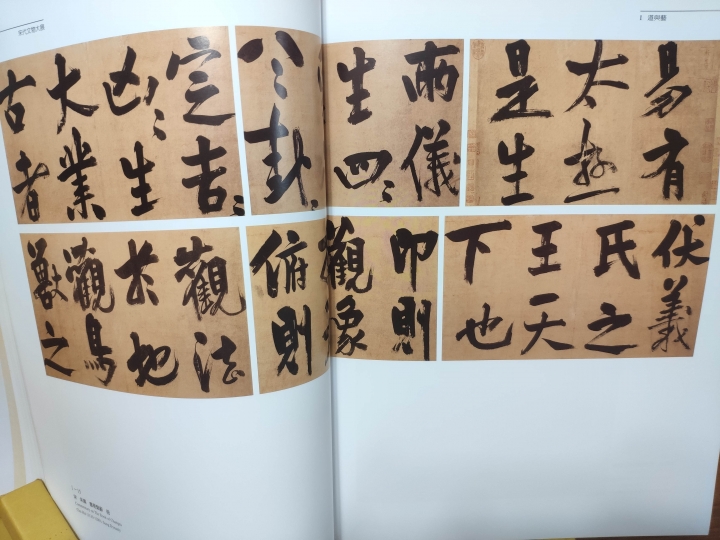 道與藝
易有
太極
是生
兩儀
生四〻
八〻卦〻
定吉〻
凶〻生
大業
古者
伏羲
氏之
王天
下也
仰則
觀象
俯則
觀法
於地
觀鳥
獸之